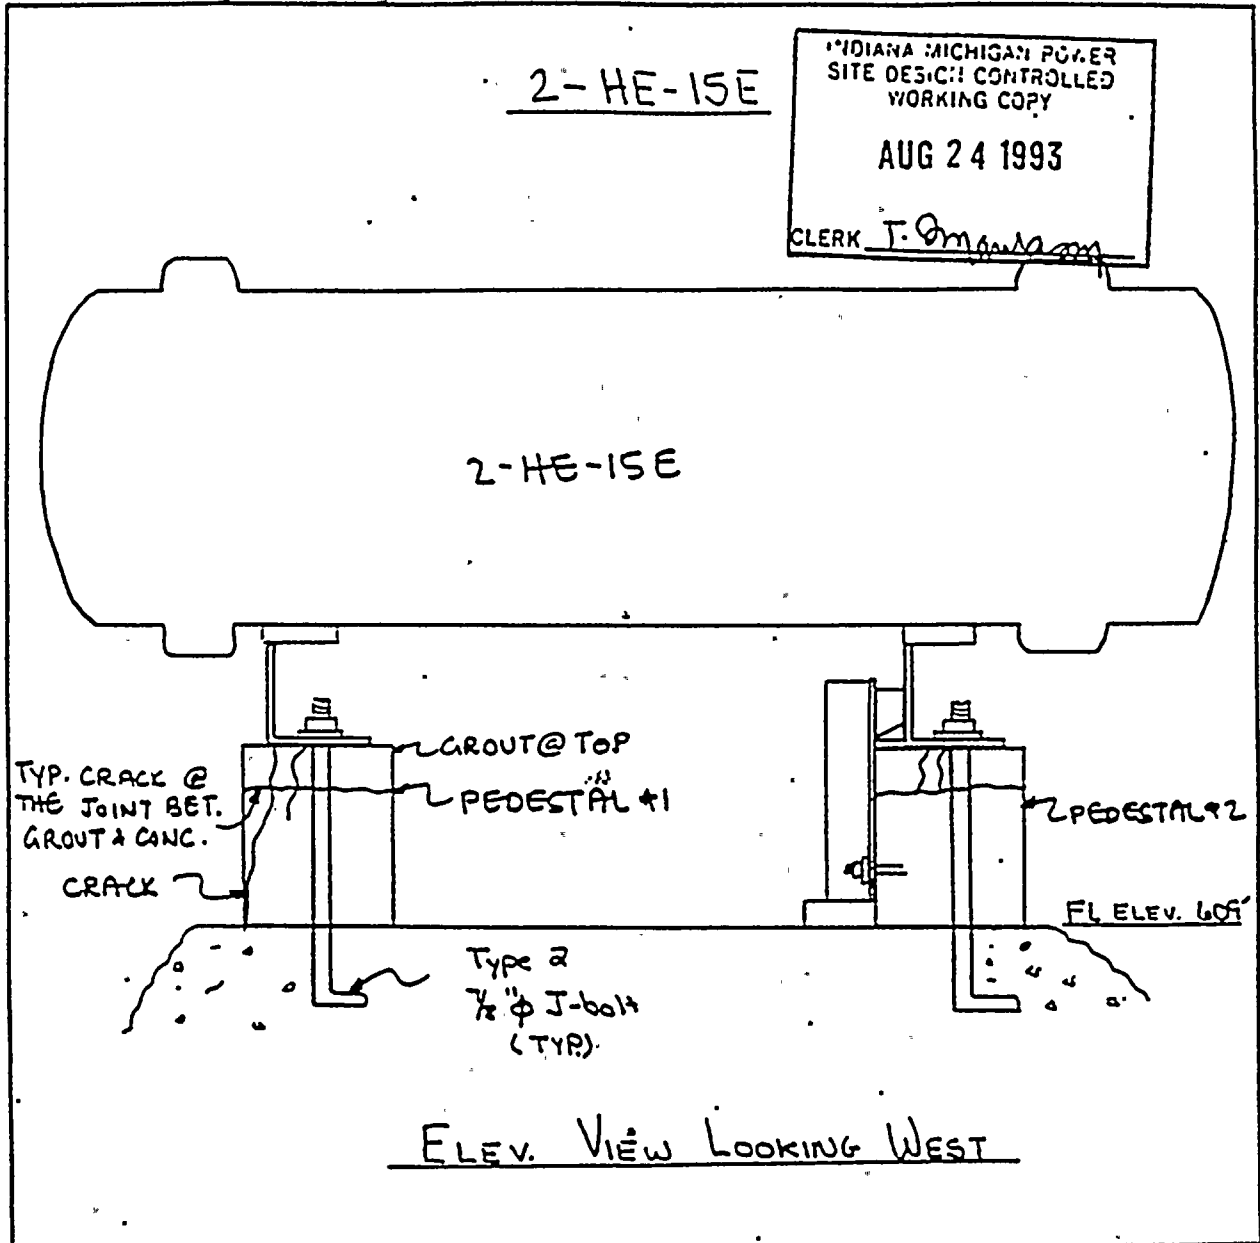 2-HE-15E
INDIANA MICHIGAN POWER
SITE DESIGN CONTROLLED
WORKING COPY
AUG 24 1993
CLERK T.
2-HE-15E
GROUT @ TOP
TYP. CRACK @
THE JOINT BET.
GROUT & CONC.
PEDESTAL #1
PEDESTAL #2
CRACK
FL ELEV. 609'
Type 2
7/8"φ J-bolt
(TYP.)
ELEV. VIEW LOOKING WEST